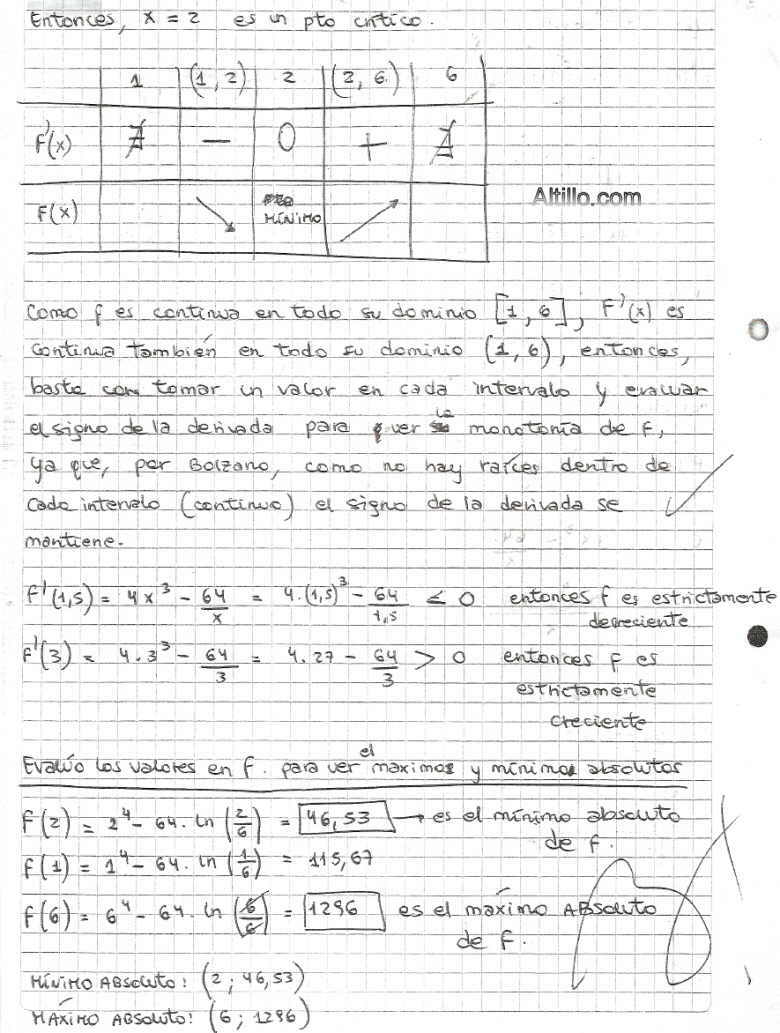 Entonces, x = 2 es un pto crítico.
1 (1, 2) 2 (2, 6) 6
F'(x) ∄ − 0 + ∄
F(x) ↘ MÍNIMO ↗
Altillo.com
Como f es continua en todo su dominio [1, 6], F'(x) es
continua también en todo su dominio (1, 6), entonces,
basta con tomar un valor en cada intervalo y evaluar
el signo de la derivada para ver la monotonía de F,
ya que, por Bolzano, como no hay raíces dentro de
cada intervalo (continuo) el signo de la derivada se
mantiene.
F'(1,5) = 4x³ − 64/x = 4.(1,5)³ − 64/1,5 < 0 entonces f es estrictamente
decreciente
F'(3) = 4.3³ − 64/3 = 4.27 − 64/3 > 0 entonces F es
estrictamente
creciente
Evalúo los valores en F. para ver el maximos y mínimos absolutos
F(2) = 2⁴ − 64. ln (2/6) = 46,53 → es el mínimo absoluto
de F.
F(1) = 1⁴ − 64. ln (1/6) = 115,67
F(6) = 6⁴ − 64. ln (6/6) = 1296 es el máximo ABSOLUTO
de F.
MÍNIMO ABSOLUTO: (2 ; 46,53)
MÁXIMO ABSOLUTO: (6 ; 1296)